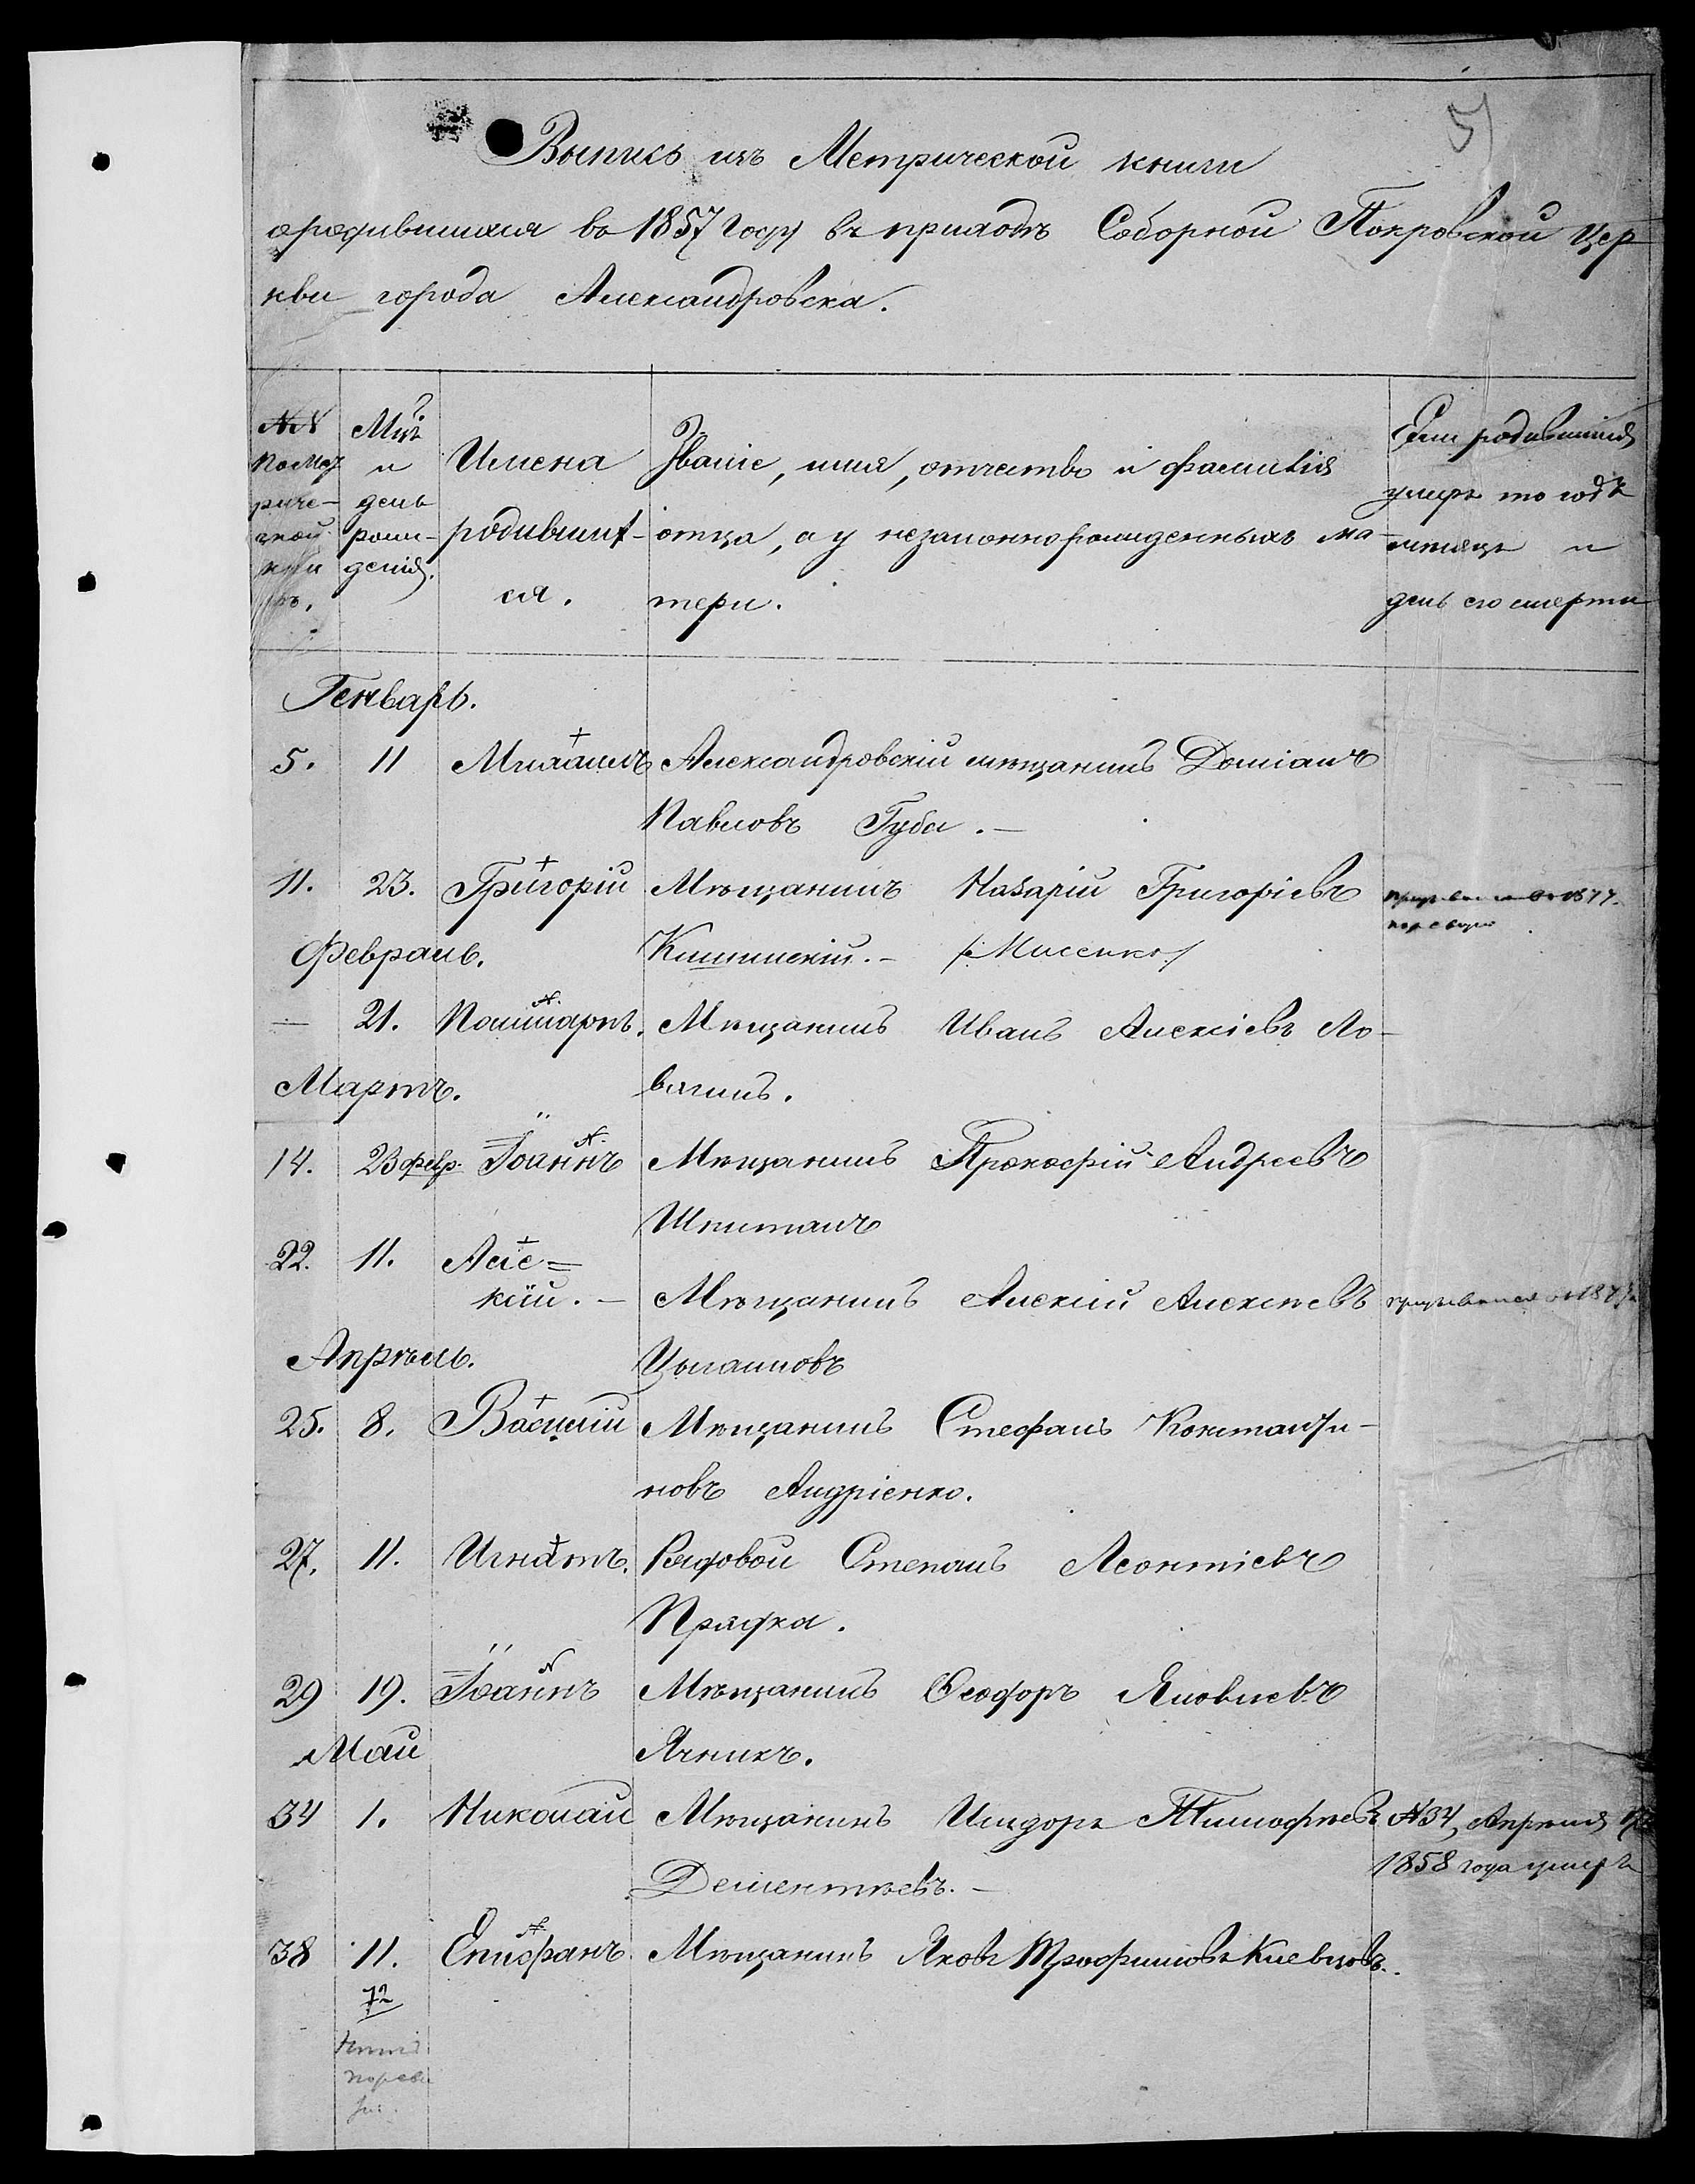 5)
Выпись изъ Метрической книги
ородившихся въ 1857 году въ приходѣ Соборной Покровской Цер
кви города Александровска.
№№ по метрической книгѣ.
Мцъ и день рожденія.
Имена родившихся.
Званіе, имя, отчество и фамилія
отца, а у незаконнорожденныхъ ма-
тери.
Если родившійся
умеръ то годъ
мѣсяцъ и
день его смерти
Генварь.
5. 11 Михаилъ Александровскій мѣщанинъ Доміанъ
Павловъ Губа.—
11. 23. Григорій Мѣщанинъ Назарій Григоріевъ
1877.
Февраль. Кишинскій.— /Мисенко/
— 21. Мѣщанинъ Иванъ Алексіевъ Ло-
Мартъ. вягинъ.
14. 23 февр. Іоаннъ Мѣщанинъ Прокофій Андреевъ
Шпиталь
22. 11. Але=
ксій.— Мѣщанинъ Алексій Алексѣевъ
Апрѣль. Цыганковъ
25. 8. Василій Мѣщанинъ Стефанъ Константи-
новъ Андріенко.
27. 11. Игнатъ. Рядовой Степанъ Леонтіевъ
Прядка.
29 19. Іоаннъ Мѣщанинъ Ѳеодоръ Яковлевъ
Май Ячникъ.
34 1. Николай Мѣщанинъ Исидоръ Тимофѣевъ №34, Апрѣля
Дементѣевъ.— 1858 года умеръ
38 11. Епифанъ. Мѣщанинъ Яковъ Трофимовъ Киевцовъ.
72